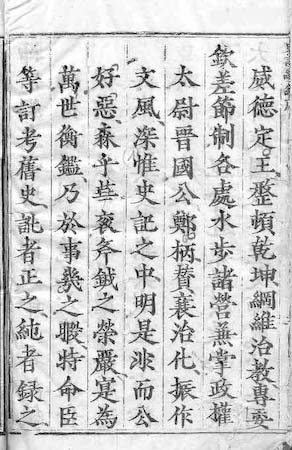 威德定王整頓乾坤綱維治教專委
欽差節制各處水步諸營兼掌政權
太尉晉國公鄭柄賛襄治化振作
文風深惟史記之中明是非而公
好惡森乎華袞斧鉞之榮嚴寔為
萬世衡鑑乃於事幾之暇特命臣
等訂考舊史訛者正之純者録之